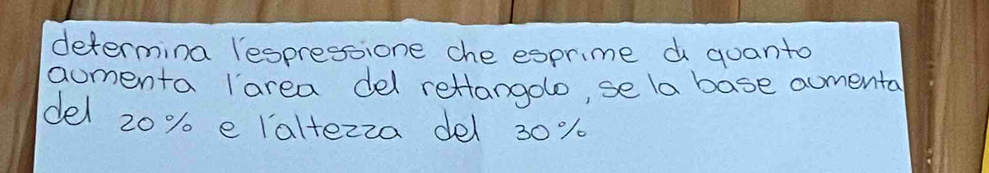 determina l'espressione che esprime di quanto
aumenta l'area del rettangolo, se la base aumenta
del 20% e l'altezza del 30%